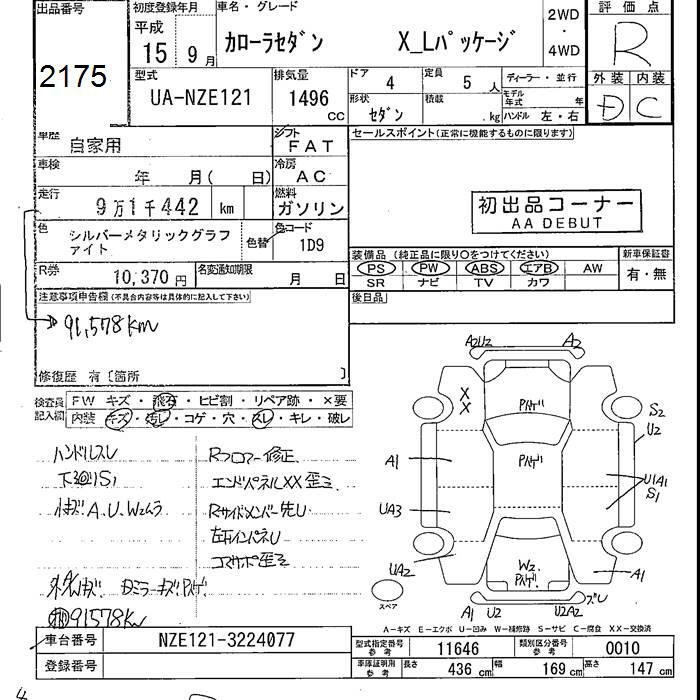 出品番号
2175
初度登録年月
平成
15 9月
車名・グレード
カローラセダン X_Lパッケージ
2WD
・
4WD
評価点
R
型式
UA-NZE121
排気量
1496
CC
ドア 4
定員 5 人
ディーラー・並行
モデル年式 年
形状 セダン
積載 .kg
ハンドル 左・右
外装 内装
D C
車歴
自家用
シフト
FAT
セールスポイント(正常に機能するものに限ります)
車検
年 月( 日)
冷房
AC
走行
9万1千442 km
燃料
ガソリン
初出品コーナー
AA DEBUT
色
シルバーメタリックグラファイト
色替
色コード
1D9
装備品 (純正品に限り○をつけてください)
新車保証書
PS PW ABS エアB AW
SR ナビ TV カワ
有・無
R券
10,370 円
名変通知期限
月 日
後日品
注意事項申告欄(不具合内容等は具体的に記入して下さい)
91,578km
修復歴 有〔箇所 〕
検査員記入欄
FW キズ・飛石・ヒビ割・リペア跡・×要
内装 キズ・汚レ・コゲ・穴・スレ・キレ・破レ
ハンドルスレ
下廻りS1
Rフロアー修正
エンドパネルXX歪ミ
A.U.W2ムラ
Rサイドメンバー先U
左右インパネU
コアサポ歪ミ
91578km
A2U2 A2
X
X
S2
U2
A1
U1A1
S1
UA3
UA2
W2
A1
A1 U2 U2A2
スペア
A-キズ E-エクボ U-凹み W-補修跡 S-サビ C-腐食 XX-交換済
車台番号
NZE121-3224077
型式指定番号
参考
11646
類別区分番号
参考
0010
登録番号
車庫証明用
参考
長さ 436 cm
幅 169 cm
高さ 147 cm